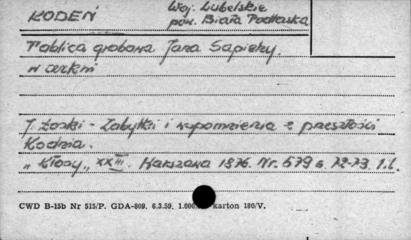 KODEŃ
Woj. Lubelskie
pow. Biała Podlaska
Tablica grobowa Jana Sapiehy.
w cerkwi
J. Łoski - Zabytki i wspomnienia z przeszłości
Kodnia.
„Kłosy„ XXIII. Warszawa 1876. Nr. 579 s. 72-73. 1.l.
CWD B-15b Nr 515/P. GDA-809. 6.3.59. 1.000. karton 180/V.